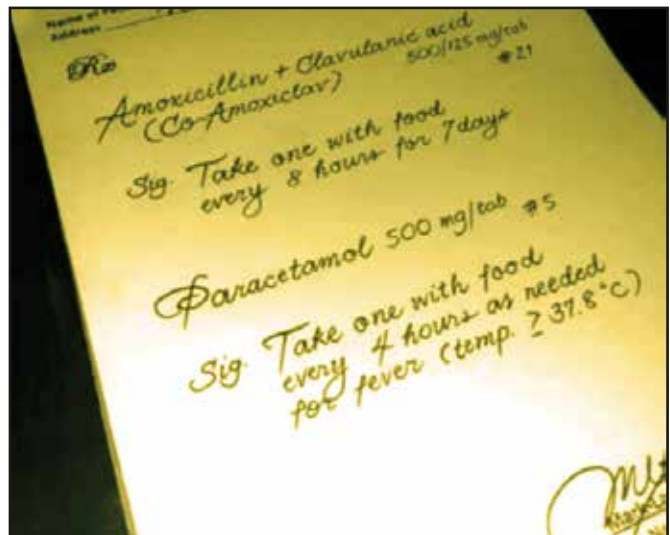 Name of
Address
Rx
Amoxicillin + Clavulanic acid
(Co-Amoxiclav) 500/125 mg/tab
#21
Sig. Take one with food
every 8 hours for 7 days
Paracetamol 500 mg/tab #5
Sig. Take one with food
every 4 hours as needed
for fever (temp. ≥ 37.8°C)